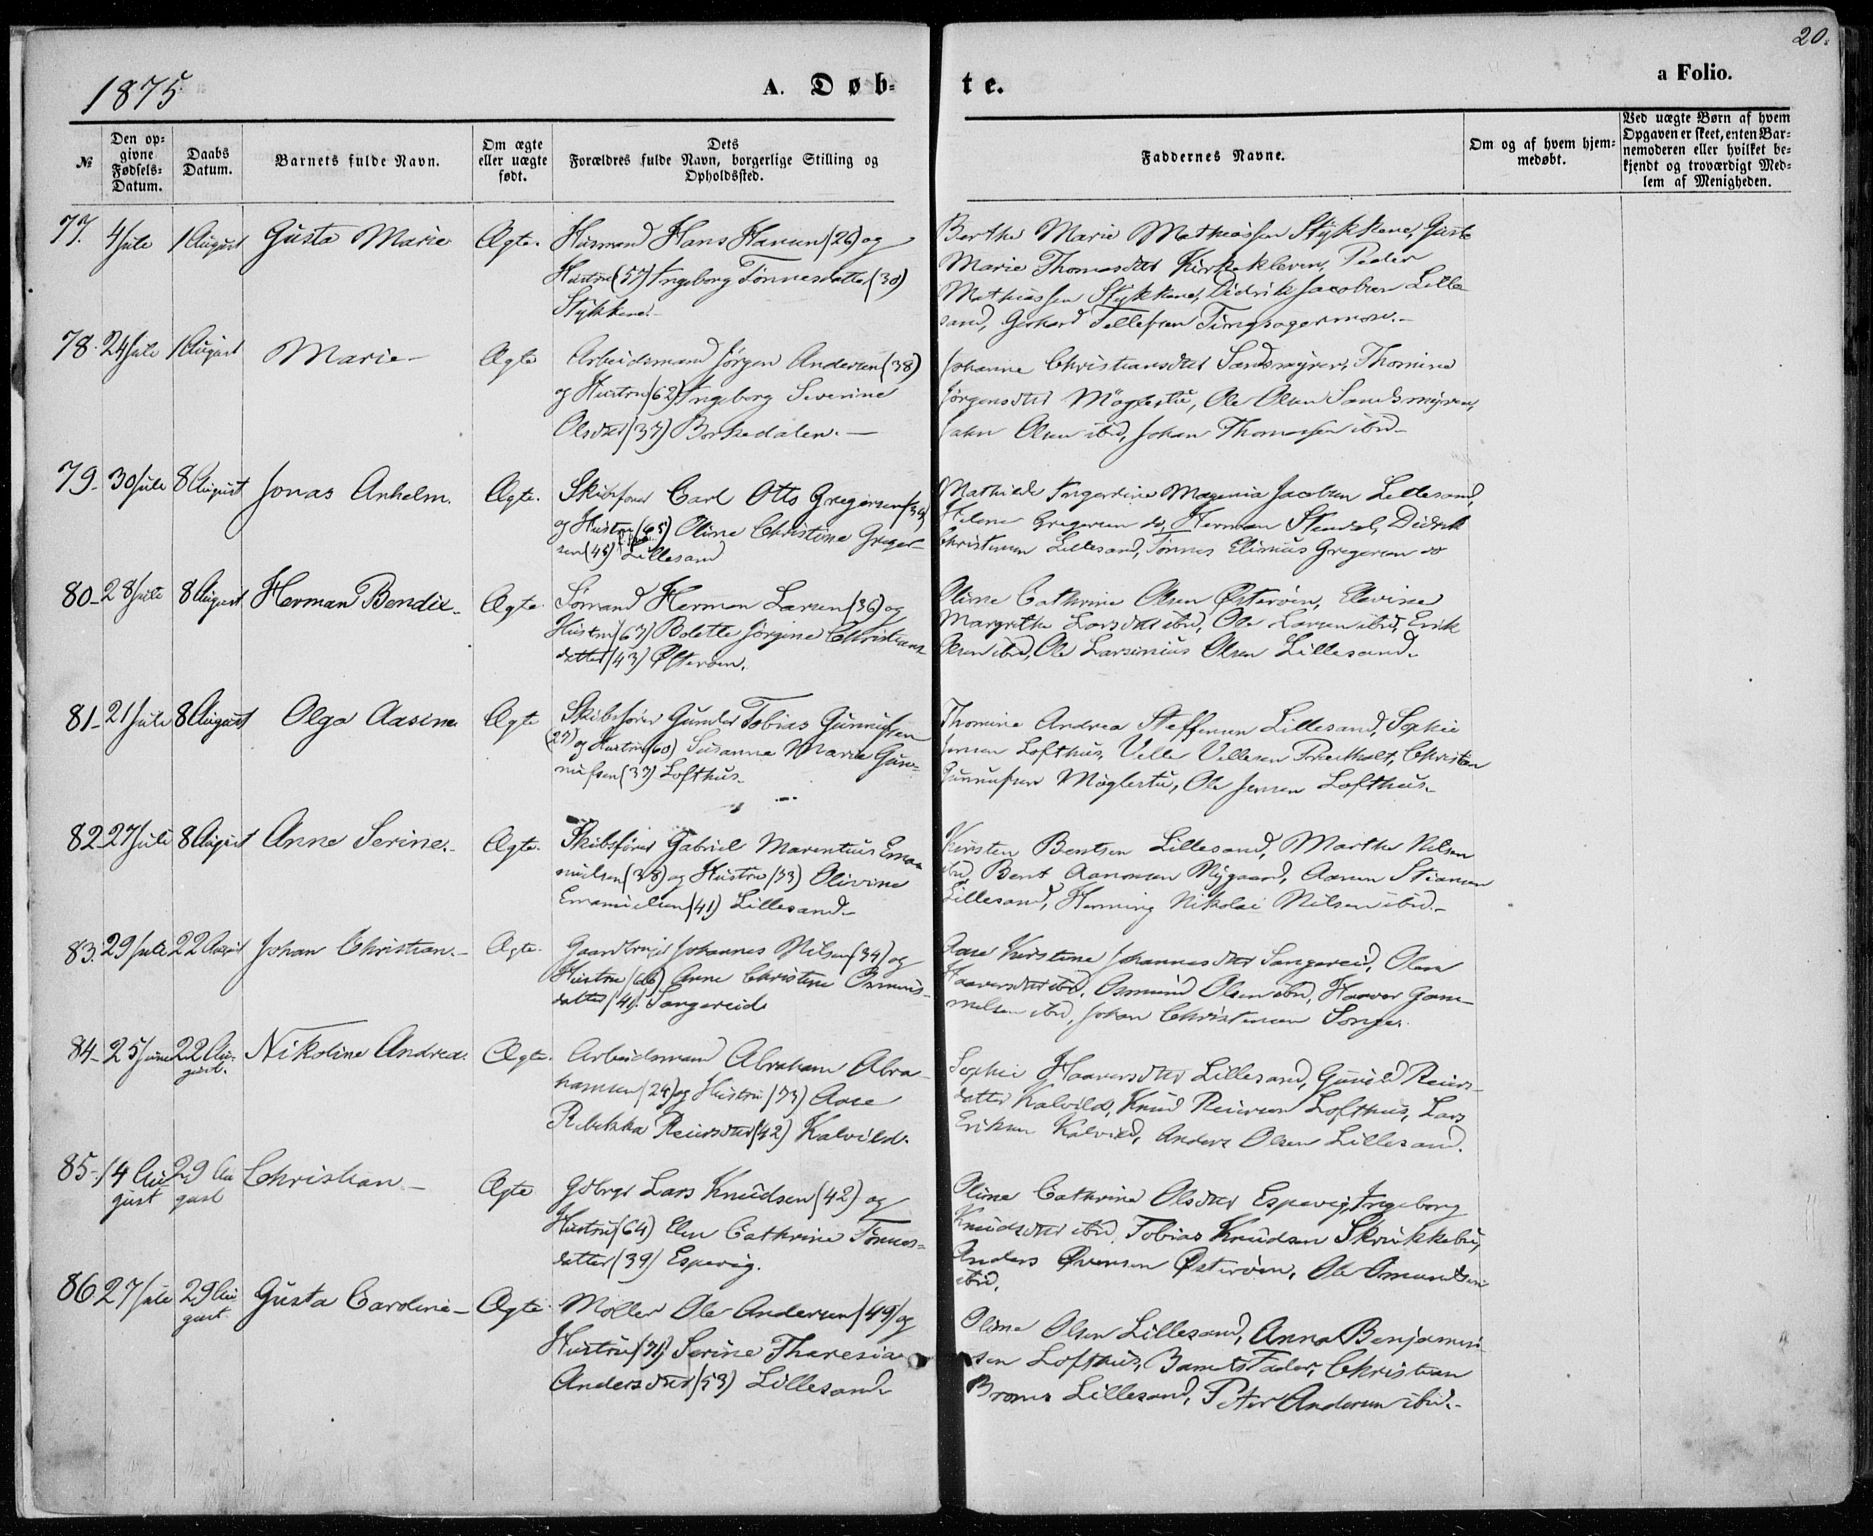 1875
A. Døb-
te.
a Folio.
20.
№
Den op-
givne
Fødsels-
Datum.
Daabs
Datum.
Barnets fulde Navn.
Om ægte
eller uægte
født.
Dets
Forældres fulde Navn, borgerlige Stilling og
Opholdssted.
Faddernes Navne.
Om og af hvem hjem-
medøbt.
Ved uægte Børn af hvem
Opgaven er skeet, enten Bar-
nemoderen eller hvilket be-
kjendt og troværdigt Med-
lem af Menigheden.
77. 4 Juli 1 August Gusta Marie Ægte. Husmand Hans Hansen (26) og
Hustru (57) Ingeborg Tønnesdatter (30)
Stykkene.
Berthe Marie Mathiassen Stykkene, Guste
Marie Thomasdtr Kirkekleven, Peder
Mathiassen Stykkene, Didrik Jacobsen Lille-
sand, Gerhard Tellefsen Tingsagermoen.
78. 24 Juli 1 August Marie Ægte Arbeidsmand Jørgen Andersen (38)
og Hustru (62) Ingeborg Severine
Olsdtr (37) Borkedalen.
Johanne Christiansdtr Sandsmyren, Thomine
Jørgensdtr Møglestu, Ole Olsen Sandsmyren,
John Olsen ibid, Johan Thomassen ibid.
79. 30 Juli 8 August Jonas Anhelm. Ægte. Skibsfører Carl Otto Gregersen (39)
og Hustru (65) Oline Christine Greger-
sen (45) Lillesand
Mathilde Ingerdine Magenia Jacobsen Lillesand,
Helene Gregersen do, Herman Stendal, Didrik
Christensen Lillesand, Tønnes Elinius Gregersen do
80. 28 Juli 8 August Herman Bendix. Ægte. Sømand Herman Larsen (36) og
Hustru (67) Bolette Jørgine Christians-
datter (43) Østerøen.
Oline Cathrine Olsen Østerøen, Elevine
Margrethe Larsdtr ibid, Ole Larsen ibid, Erik
Olsen ibid, Ole Larsinius Olsen Lillesand.
81. 21 Juli 8 August Olga Aasine Ægte Skibsfører Gunder Tobias Gunnufsen
(27) og Hustru (60) Susanne Marie Gun-
nufsen (37) Lofthus.
Thomine Andrea Steffensen Lillesand, Sophie
Jensen Lofthus, Velle Vellesen Præstholt, Christen
Gunnufsen Møglestu, Ole Jensen Lofthus.
82. 27 Juli 8 August Anne Serine. Ægte. Skibsfører Gabriel Marentius Eman-
uelsen (38) og Hustru (33) Olivine
Emanuelsen (41) Lillesand.
Kirsten Bentsen Lillesand, Marthe Nilsen
ibid, Bent Aanonsen Nygaard, Aanen Stiansen
Lillesand, Henning Nikolai Nilsen ibid.
83. 29 Juli 22 August Johan Christian. Ægte. Gaardbruger Johannes Nilsen (34) og
Hustru (66) Anne Christine Osmunds-
datter (41) Sangereid.
Aase Kirstine Johannesdtr Sangereid, Olene
Haaversdtr ibid, Osmund Olsen ibid, Haaver Gam-
melsen ibid, Johan Christensen Songe.
84. 25 June 22 Au-
gust. Nikoline Andrea. Ægte. Arbeidsmand Abraham Abra-
hamsen (24) og Hustru (73) Aase
Rebekka Reiersdtr (42) Kalvild.
Sophie Haaversdtr Lillesand, Gunild Reiers-
datter Kalvild, Knud Reiersen Lofthus, Lars
Eriksen Kalvild, Anders Olsen Lillesand.
85. 14 Au-
gust 29 Au
gust Christian Ægte Gdbrgr Lars Knudsen (42) og
Hustru (64) Elen Cathrine Tønnes-
datter (39) Espevig.
Oline Cathrine Olsdtr Espevig, Ingeborg
Knudsdtr ibid, Tobias Knudsen Skrukkebu,
Anders Iversen Østerøen, Ole Omundsen
ibid.
86 27 Juli 29 Au
gust Gusta Caroline Ægte. Møller Ole Andersen (49) og
Hustru (71) Serine Theresia
Andersdtr (53) Lillesand.
Oline Olsen Lillesand, Anna Benjamin-
sen Lofthus, Barnets Fader, Christian
Broms Lillesand, Peter Andersen ibid.